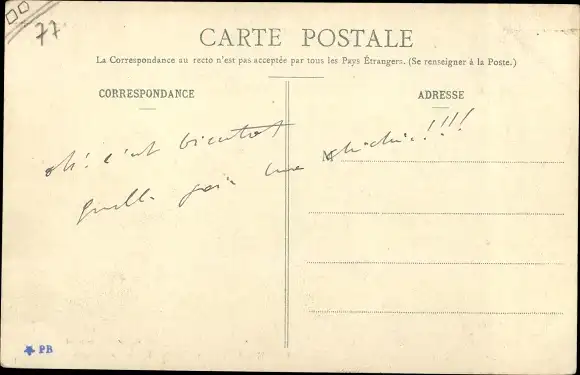 77
CARTE POSTALE
La Correspondance au recto n'est pas acceptée par tous les Pays Étrangers. (Se renseigner à la Poste.)
CORRESPONDANCE
ADRESSE
oh! c'est bientot
M
quelle une !!!!
PB